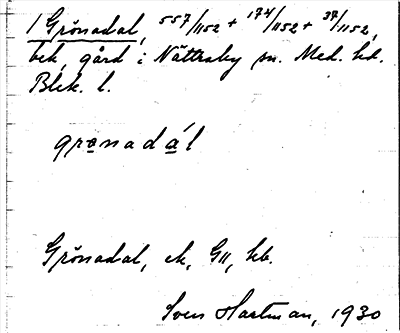 1 Grönadal, 557/1152 + 174/1152 + 37/1152,
bek, gård i Nättraby sn. Med. hd.
Blek. l.
gronadál
Grönadal, ek, G11, hb.
Sven Hartman, 1930